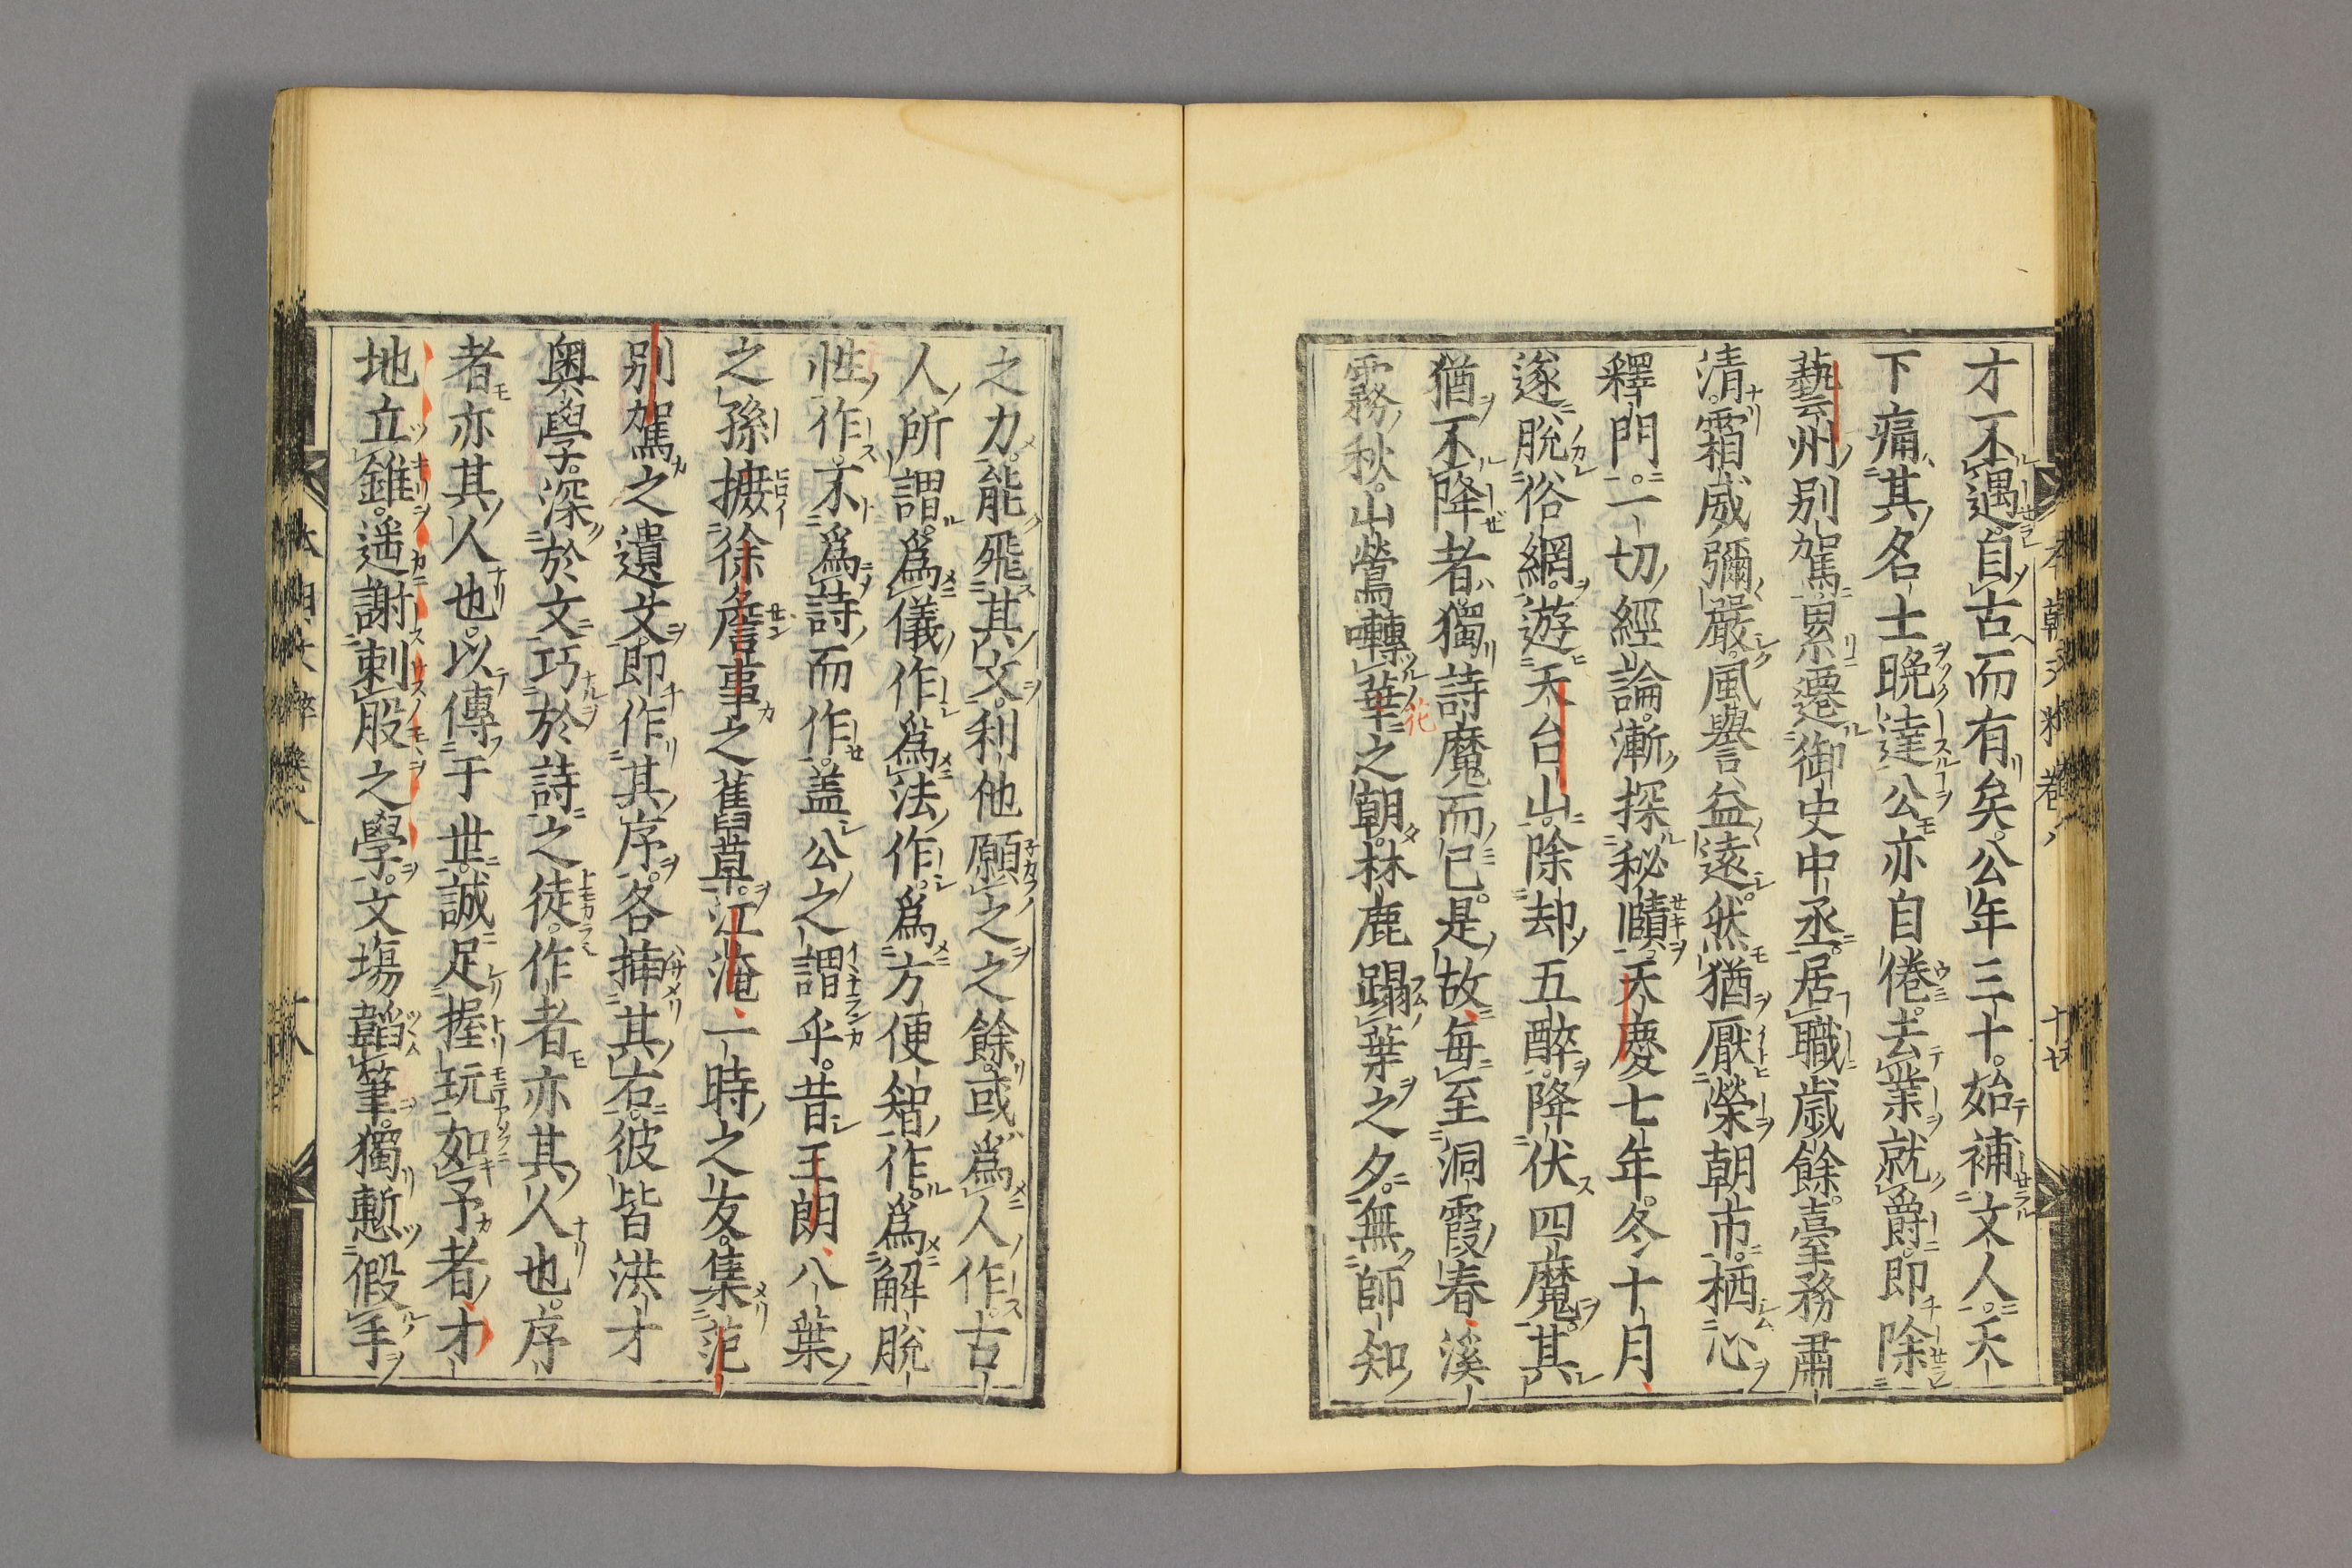 才不遇。自古而有矣。公年三十。始補文人。天
下痛其名士晩達。公亦自倦。去業就爵。即除
藝州別駕。累遷御史中丞。居職歳餘。臺務肅
清。霜威彌嚴。風譽益遠。然猶厭榮朝市。栖心
釋門。一切經論。漸探秘賾。天慶七年。冬十月
遂脫俗網。遊天台山。除却五醉。降伏四魔。其
猶不降者。獨詩魔而已。是故毎至洞霞春溪
霧秋。山鶯囀華之朝。林鹿蹋葉之夕。無師知
之力。能飛其文。利他願之之餘。或爲人作。古
人所謂。爲儀作爲法作。爲方便智作。爲解脫
性作。不爲詩而作。盖公之謂乎。昔王朗八葉
之孫。摭徐詹事之舊草。江淹一時之友。集范
別駕之遺文。即作其序。各插其右。彼皆洪才
奥學。深於文巧於詩之徒。作者亦其人也。序
者亦其人也。以傳于世。誠足握玩。如予者才
地立錐。遥謝刺股之學。文塲韜筆。獨慙假手